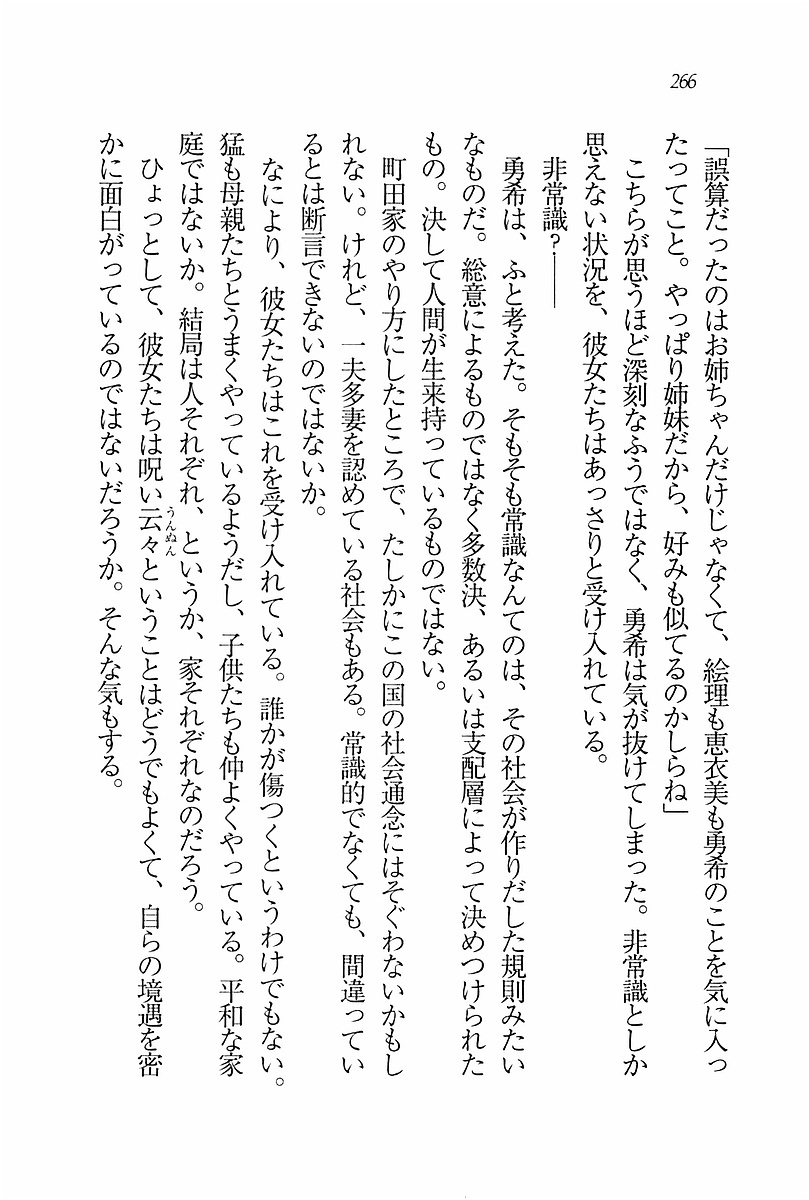 266
「誤算だったのはお姉ちゃんだけじゃなくて、絵理も恵衣美も勇希のことを気に入っ
たってこと。やっぱり姉妹だから、好みも似てるのかしらね」
こちらが思うほど深刻なふうではなく、勇希は気が抜けてしまった。非常識としか
思えない状況を、彼女たちはあっさりと受け入れている。
非常識？――
勇希は、ふと考えた。そもそも常識なんてのは、その社会が作りだした規則みたい
なものだ。総意によるものではなく多数決、あるいは支配層によって決めつけられた
もの。決して人間が生来持っているものではない。
町田家のやり方にしたところで、たしかにこの国の社会通念にはそぐわないかもし
れない。けれど、一夫多妻を認めている社会もある。常識的でなくても、間違ってい
るとは断言できないのではないか。
なにより、彼女たちはこれを受け入れている。誰かが傷つくというわけでもない。
猛も母親たちとうまくやっているようだし、子供たちも仲よくやっている。平和な家
庭ではないか。結局は人それぞれ、というか、家それぞれなのだろう。
ひょっとして、彼女たちは呪い云々ということはどうでもよくて、自らの境遇を密
うんぬん
かに面白がっているのではないだろうか。そんな気もする。